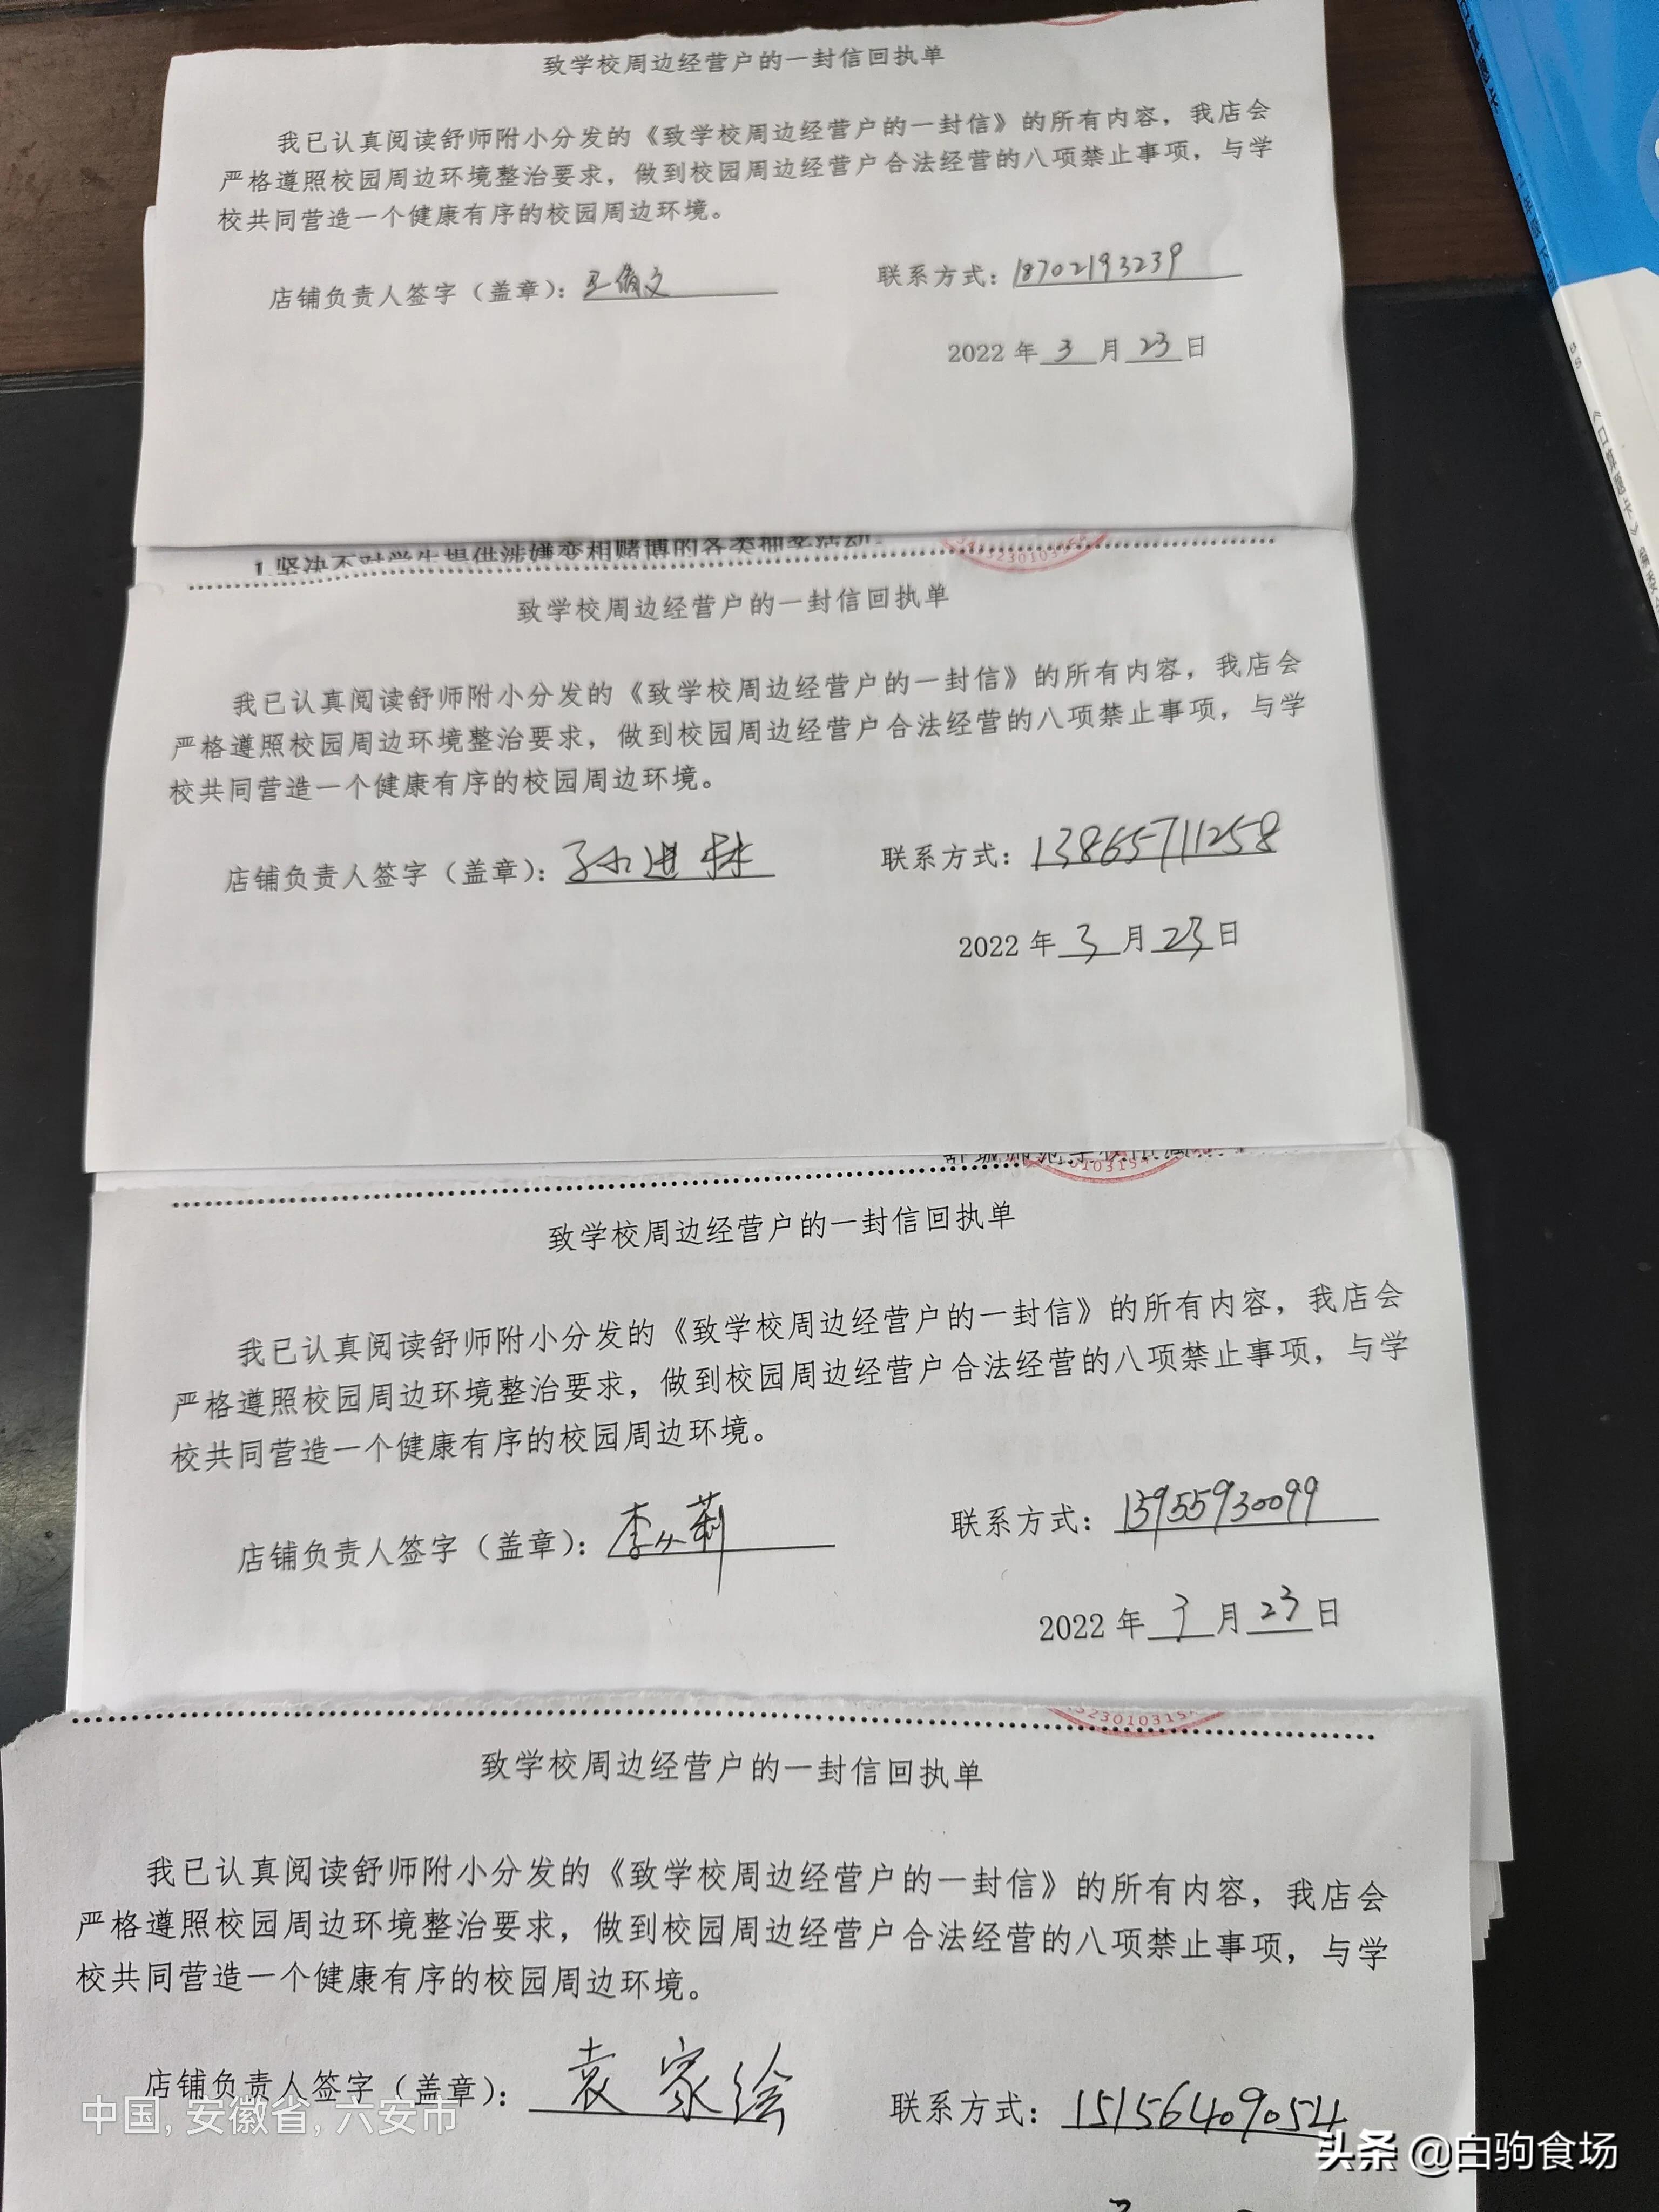 致学校周边经营户的一封信回执单
我已认真阅读舒师附小分发的《致学校周边经营户的一封信》的所有内容，我店会
严格遵照校园周边环境整治要求，做到校园周边经营户合法经营的八项禁止事项，与学
校共同营造一个健康有序的校园周边环境。
店铺负责人签字（盖章）： 联系方式：18702193239
2022 年 3 月 23 日
1.坚决不对学生提供涉嫌变相赌博的各类抽奖活动.
致学校周边经营户的一封信回执单
我已认真阅读舒师附小分发的《致学校周边经营户的一封信》的所有内容，我店会
严格遵照校园周边环境整治要求，做到校园周边经营户合法经营的八项禁止事项，与学
校共同营造一个健康有序的校园周边环境。
店铺负责人签字（盖章）：孙进林 联系方式：13865711258
2022 年 3 月 23 日
致学校周边经营户的一封信回执单
我已认真阅读舒师附小分发的《致学校周边经营户的一封信》的所有内容，我店会
严格遵照校园周边环境整治要求，做到校园周边经营户合法经营的八项禁止事项，与学
校共同营造一个健康有序的校园周边环境。
店铺负责人签字（盖章）： 联系方式：13955930099
2022 年 3 月 23 日
323010315
致学校周边经营户的一封信回执单
我已认真阅读舒师附小分发的《致学校周边经营户的一封信》的所有内容，我店会
严格遵照校园周边环境整治要求，做到校园周边经营户合法经营的八项禁止事项，与学
校共同营造一个健康有序的校园周边环境。
店铺负责人签字（盖章）：袁家绘 联系方式：15156409054
中国, 安徽省, 六安市
头条 @白驹食场